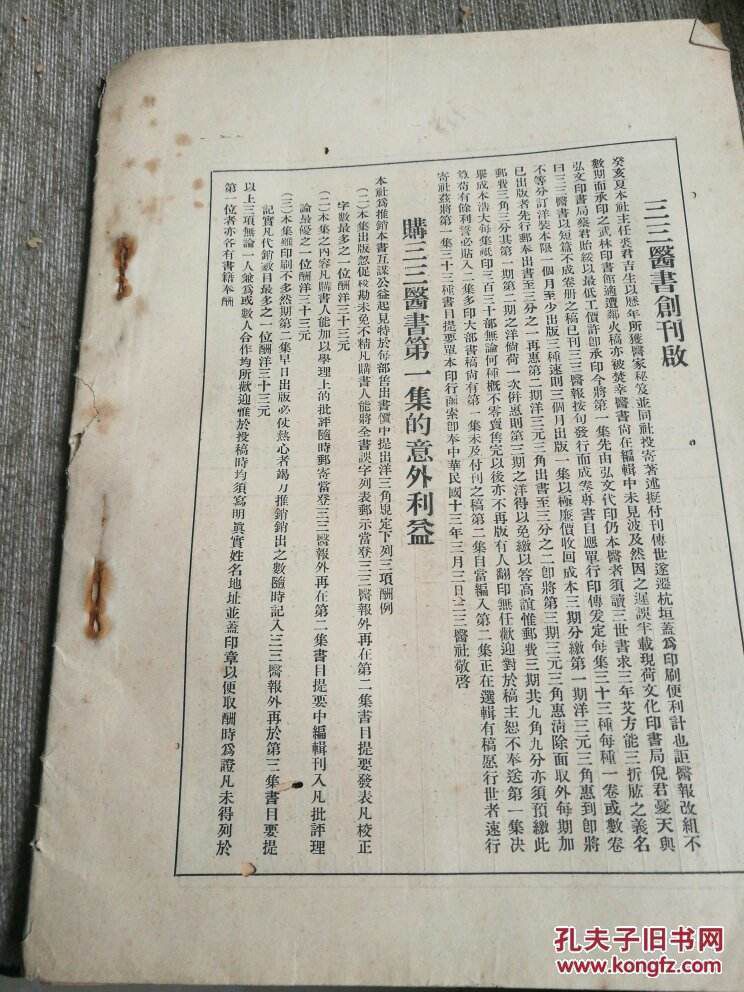 三三醫書創刊啟
癸亥夏本社主任裘君吉生以歷年所獲醫家秘笈並同社投寄著述擬付刊傳世遂遷杭垣蓋爲印刷便利計也詎醫報改組不
數期而承印之武林印書館適遭鄰火稿亦被焚幸醫書尙在編輯中未見波及然因之遲誤半載現荷文化印書局倪君憂天與
弘文印書局蔡君貽紱以最低工價許卽承印今將第一集先由弘文代印仍本醫者須讀三世書求三年艾方能三折肱之義名
曰三三醫書以短篇不成卷册之稿已刊三三醫報按句發行而成卷專書自應單行印傳爰定每集三十三種每種一卷或數卷
不等分訂洋裝本限一個月至少出版三種速則三個月出版一集以極廉價收回成本三期分繳第一期洋三元三角惠到卽將
已出版者先行郵奉出書至三分之一再惠第二期洋三元三角出書至三分之二卽將第三期三元三角惠淸除面取外每期加
郵費三角三分其第一期第二期之洋倘荷一次併惠則第三期之洋得以免繳以答高誼惟郵費三期共九角九分亦須預繳此
舉成本浩大每集祇印三百三十部無論何種槪不零賣售完以後亦不再版有人翻印無任歡迎對於稿主恕不奉送第一集決
算苟有餘利誓必貼入二集多印大部書稿尙有第一集未及付刊之稿第二集自當編入第二集正在選輯有稿愿行世者速行
寄社茲將第一集三十三種書目提要單本印行函索卽奉中華民國十三年三月三日三三醫社敬啓
購三三醫書第一集的意外利益
本社爲推銷本書互謀公益起見特於每部售出書價中提出洋三角規定下列三項酬例
(一)本集出版忽促校勘未免不精凡購書人能將全書誤字列表郵示當登三三醫報外再在第二集書目提要發表凡校正
字數最多之一位酬洋三十三元
(二)本集之內容凡購書人能加以學理上的批評隨時郵寄當登三三醫報外再在第二集書目提要中編輯刊入凡批評理
論最優之一位酬洋三十三元
(三)本集細印刷不多然期第二集早日出版必仗熱心者竭力推銷銷出之數隨時記入三三醫報外再於第三集書目要提
記實凡代銷數目最多之一位酬洋三十三元
以上三項無論一人兼爲或數人合作均所歡迎惟於投稿時均須寫明眞實姓名地址並蓋印章以便取酬時爲證凡未得列於
第一位者亦各有書籍奉酬
孔夫子旧书网
www.kongfz.com